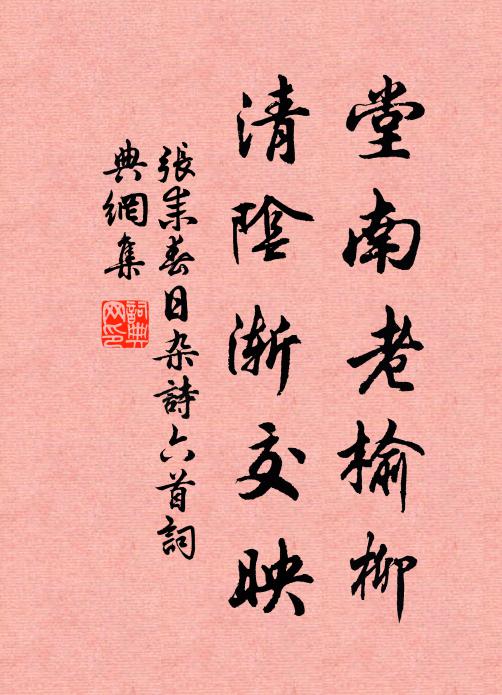 堂南老榆柳
清陰漸交映
張耒春日杂詩六首詞
典網集
詞典
网印